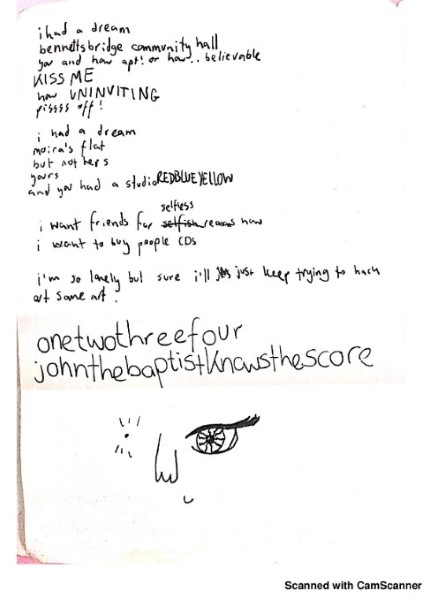 i had a dream
bennettsbridge community hall
you and how apt! or how.. believable
KISS ME
how UNINVITING
pissss off!
i had a dream
moira's flat
but not hers
yours
and you had a studio REDBLUEYELLOW
selfless
i want friends for selfish reasons now
i want to buy people CDs
i'm so lonely but sure i'll just keep trying to hack
out some art.
onetwothreefour
johnthebaptistknowsthescore
Scanned with CamScanner